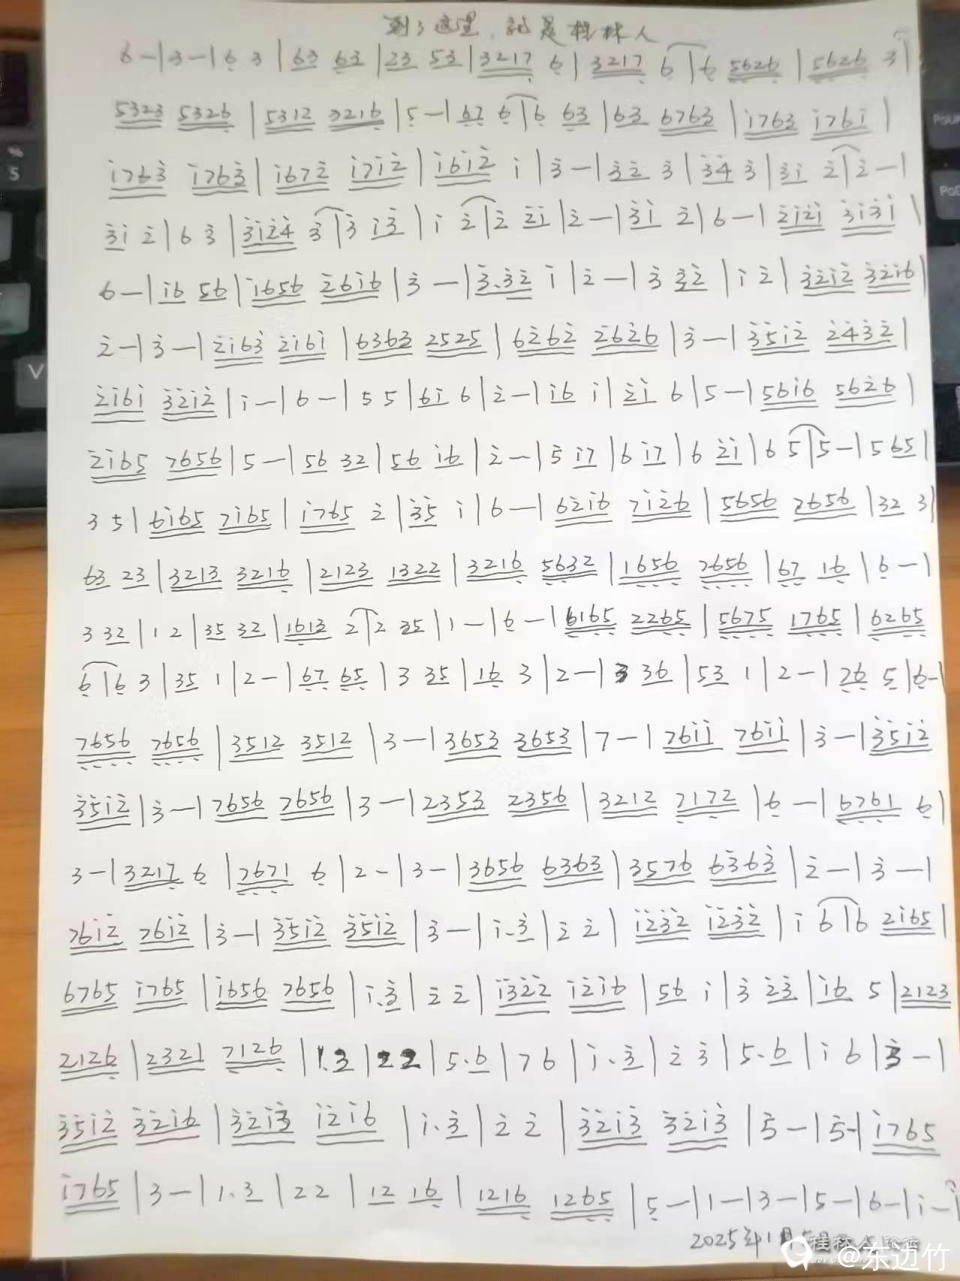 到了这里，就是桂林人
6 — | 3 — | 6 3 | 63 63 | 23 53 | 3217 6 | 3217 6 | 6 5626 | 5626 3 |
5323 5326 | 5312 3216 | 5 — | 67 6 | 6 63 | 63 6763 | i763 i76i |
i763 i763 | i672 i7i2 | i6i2 i | 3 — | 32 3 | 34 3 | 3i 2 | 2 — |
3i 2 | 6 3 | 3i24 3 | 3 i3 | i 2 | 2 2i | 2 — | 3i 2 | 6 — | 2i2i 3i3i |
6 — | i6 56 | i656 26i6 | 3 — | 3.32 i | 2 — | 3 32 | i 2 | 32i2 32i6 |
2 — | 3 — | 2i63 2i6i | 6363 2525 | 6262 2626 | 3 — | 35i2 2432 |
2i6i 32i2 | i — | 6 — | 5 5 | 6i 6 | 2 — | i6 i | 2i 6 | 5 — | 56i6 5626 |
2i65 7656 | 5 — | 56 32 | 56 i6 | 2 — | 5 i7 | 6 i7 | 6 2i | 6 5 | 5 — | 5 65 |
3 5 | 6i65 7i65 | i765 2 | 35 i | 6 — | 62i6 7i26 | 5656 7656 | 32 3 |
63 23 | 3213 3216 | 2123 1322 | 3216 5632 | 1656 7656 | 67 16 | 6 — |
3 32 | 1 2 | 35 32 | 1612 2 | 2 35 | 1 — | 6 — | 6165 2265 | 5675 1765 | 6265
6 | 6 3 | 35 1 | 2 — | 67 65 | 3 35 | 16 3 | 2 — | 3 36 | 53 1 | 2 — | 26 5 | 6 —
7656 7656 | 3512 3512 | 3 — | 3653 3653 | 7 — | 76ii 76ii | 3 — | 35i2
35i2 | 3 — | 7656 7656 | 3 — | 2353 2356 | 3212 7172 | 6 — | 6761 6 |
3 — | 3217 6 | 7671 6 | 2 — | 3 — | 3656 6363 | 3576 6363 | 2 — | 3 — |
76i2 76i2 | 3 — | 35i2 35i2 | 3 — | i.3 | 2 2 | i232 i232 | i 6 | 6 2i65 |
6765 i765 | i656 7656 | i.3 | 2 2 | i322 i2i6 | 56 i | 3 23 | i6 5 | 2123
2126 | 2321 7126 | 1.3 | 22 | 5.6 | 7 6 | i.3 | 2 3 | 5.6 | i 6 | 3 — |
35i2 32i6 | 32i3 i2i6 | i.3 | 2 2 | 32i3 32i3 | 5 — | 5 - | i765
i765 | 3 — | 1.3 | 22 | 12 16 | 1216 1265 | 5 — | 1 — | 3 — | 5 — | 6 — | i — |
2025年1月5日
@东边竹